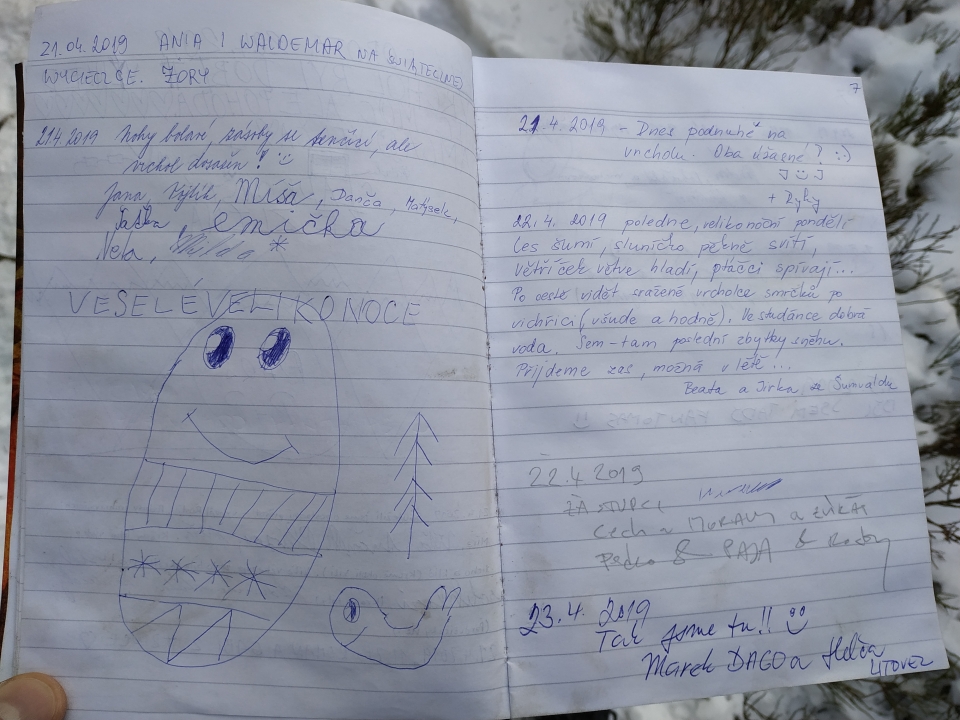 21.04.2019 ANIA I WALDEMAR NA ŚWIĄTECZNEJ
WYCIECZCE. ŻORY
21.4.2019 Nohy bolavé, zásoby se tenčící, ale
vrchol dosažen! :)
Jana, Míša, Danča, Matýsek,
emička
Nela, *
VESELÉ VELIKONOCE
7
21.4.2019 - Dnes podruhé na
vrcholu. Oba úžasné? :-)
J :) J
+ Ryky
22.4. 2019 poledne, velikonoční pondělí
Les šumí, sluníčko pěkně svítí,
větříček větve hladí, ptáčci spívají...
Po cestě vidět sražené vrcholce smrčků po
vichřici (všude a hodně). Ve studánce dobrá
voda. Sem-tam poslední zbytky sněhu.
Přijdeme zas, možná v létě...
Beata a Jirka, ze Šumvaldu
22.4 2019
ZÁSTUPCI
Čech a MORAVY a
& PAJA &
23.4. 2019
Tak jsme tu!! :)
Marek DAGO a Helča
LITOVEL